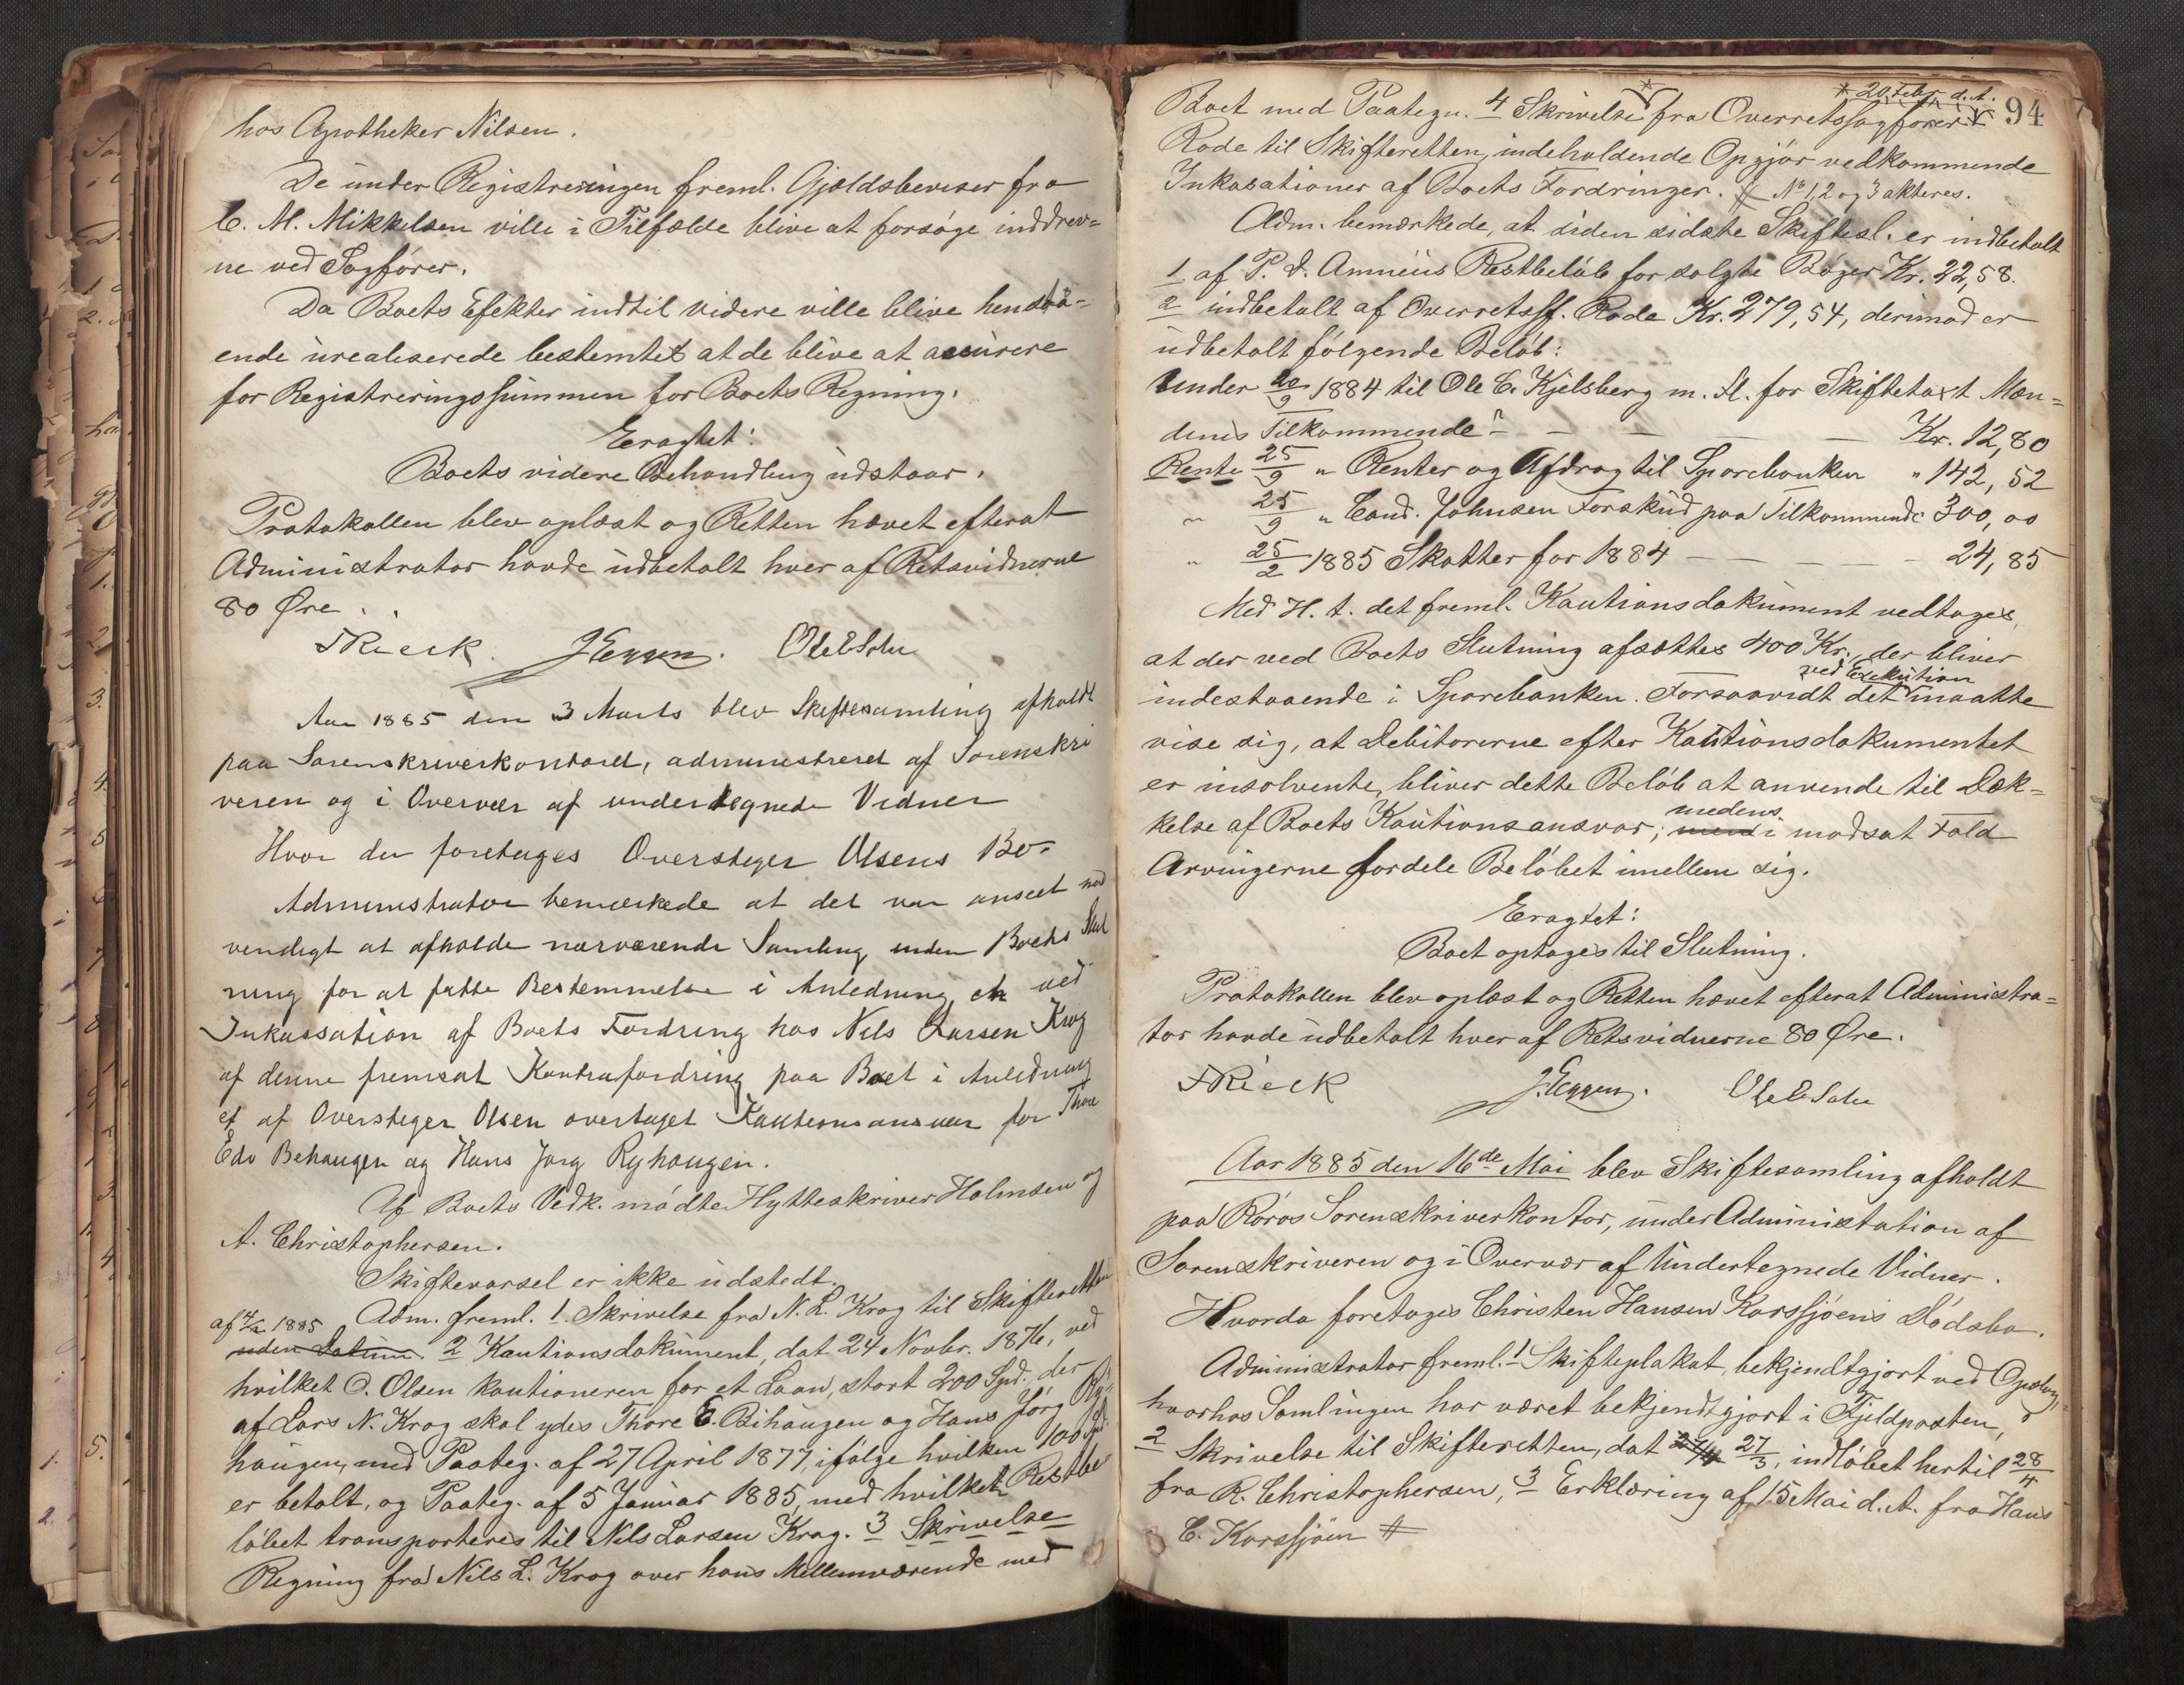 hos Apotheker Nilsen.
De under Registreringen freml. Gjældsbeviser fra
C. M. Mikkelsen ville i Tilfælde blive at forsøge inddrev-
ne ved Sagfører.
Da Boets Efekter indtil videre ville blive henstaa-
ende urealiserede bestemtes at de blive at assurere
for Registreringssummen for Boets Regning.
Eragtet:
Boets videre Behandling udstaar.
Protokollen blev oplæst og Retten hævet efterat
Administrator havde udbetalt hver af Retsvidnerne
80 Øre.
Rieck. J Eggen. Ole E Sohn
Aar 1885 den 3 Marts blev Skiftesamling afholdt
paa Sorenskriverkontoret, administreret af Sorenskri
veren og i Overvær af undertegnede Vidner
Hvor der foretages Overstiger Olsens Bo.
Administrator bemærkede at det var anseet nød
vendigt at afholde nærværende Samling inden Boets Slut
ning for at fatte Bestemmelse i Anledning en ved
Inkassation af Boets Fordring hos Nils Larsen Krog
af denne fremsat Kontrafordring paa Boet i Anledning
et af Overstiger Olsen overtaget Kautionsansvar for Thore
Edv Behaugen og Hans Jørg Ryhaugen.
Af Boets Vedk. mødte Hytteskriver Holmsen og
A. Christophersen.
Skiftevarsel er ikke udstedt.
Adm. freml. 1. Skrivelse fra N. L. Krog til Skifteretten
af 4/2 1885 uden Datum. 2 Kautionsdokument, dat 24 Novbr. 1876, ved
hvilket O. Olsen kautioneren for et Laan, stort 200 Spd., der
af Lars N. Krog skal ydes Thore E. Bihaugen og Hans Jörg Ry-
haugen, med Paateg. af 27 April 1877, ifølge hvilken 100 Spd.
er betalt, og Paateg. af 5 Januar 1885, med hvilket Restbe
løbet transporteres til Nils Larsen Krog. 3 Skrivelse
Regning fra Nils L. Krog over hans Mellemværende med
94
* 20 Febr. d. A.
Boet med Paategn. 4 Skrivelse fra Overretssagfører
Rode til Skifteretten, indeholdende Opgjør vedkommende
Inkasationer af Boets Fordringer. No 1, 2 og 3 akteres.
Adm. bemærkede, at siden sidste Skiftesl. er indbetalt
1 af P. d. Amnéus Restbeløb for solgte Bøger Kr. 22,58.
2 indbetalt af Overretssf. Rode Kr. 279,54, derimod er
udbetalt følgende Beløb:
Under 20/9 1884 til Ole E. Kjelsberg m. fl. for Skiftetaxt Mæn-
denes Tilkommende — — — — Kr. 12,80
Rente 25/9 " Renter og Afdrag til Sparebanken " 142,52
" 25/9 " Cand. Johnsen Forskud paa Tilkommende 300,00
" 25/2 1885 Skatter for 1884 — — — — 24,85
Med H. t. det freml. Kautionsdokument vedtages,
at der ved Boets Slutning afsættes 400 Kr., der bliver
indestaaende i Sparebanken. Forsaavidt det ved Exekution maatte
vise sig, at Debitorerne efter Kautionsdokumentet
er insolvente, bliver dette Beløb at anvende til Dæk-
kelse af Boets Kautionsansvar; men medens i modsat Fald
Arvingerne fordele Beløbet imellem sig.
Eragtet:
Boet optages til Slutning.
Protokollen blev oplæst og Retten hævet efterat Administra-
tor havde udbetalt hver af Retsvidnerne 80 Øre.
Rieck J. Eggen. Ole E Sohn
Aar 1885 den 16de Mai blev Skiftesamling afholdt
paa Røros Sorenskriverkontor, under Administation af
Sorenskriveren og i Overvær af Undertegnede Vidner.
Hvorda foretages Christen Hansen Korssjøens Dødsbo.
Administrator freml. 1 Skifteplakat, bekjendtgjort ved Opslag,
hvorhos Samlingen har været bekjendtgjort i Fjeldposten,
2 Skrivelse til Skifteretten, dat 27/4 27/3, indløbet hertil 28/4
fra R. Christophersen, 3 Erklæring af 15 Mai d. A. fra Hans
C. Korssjøen